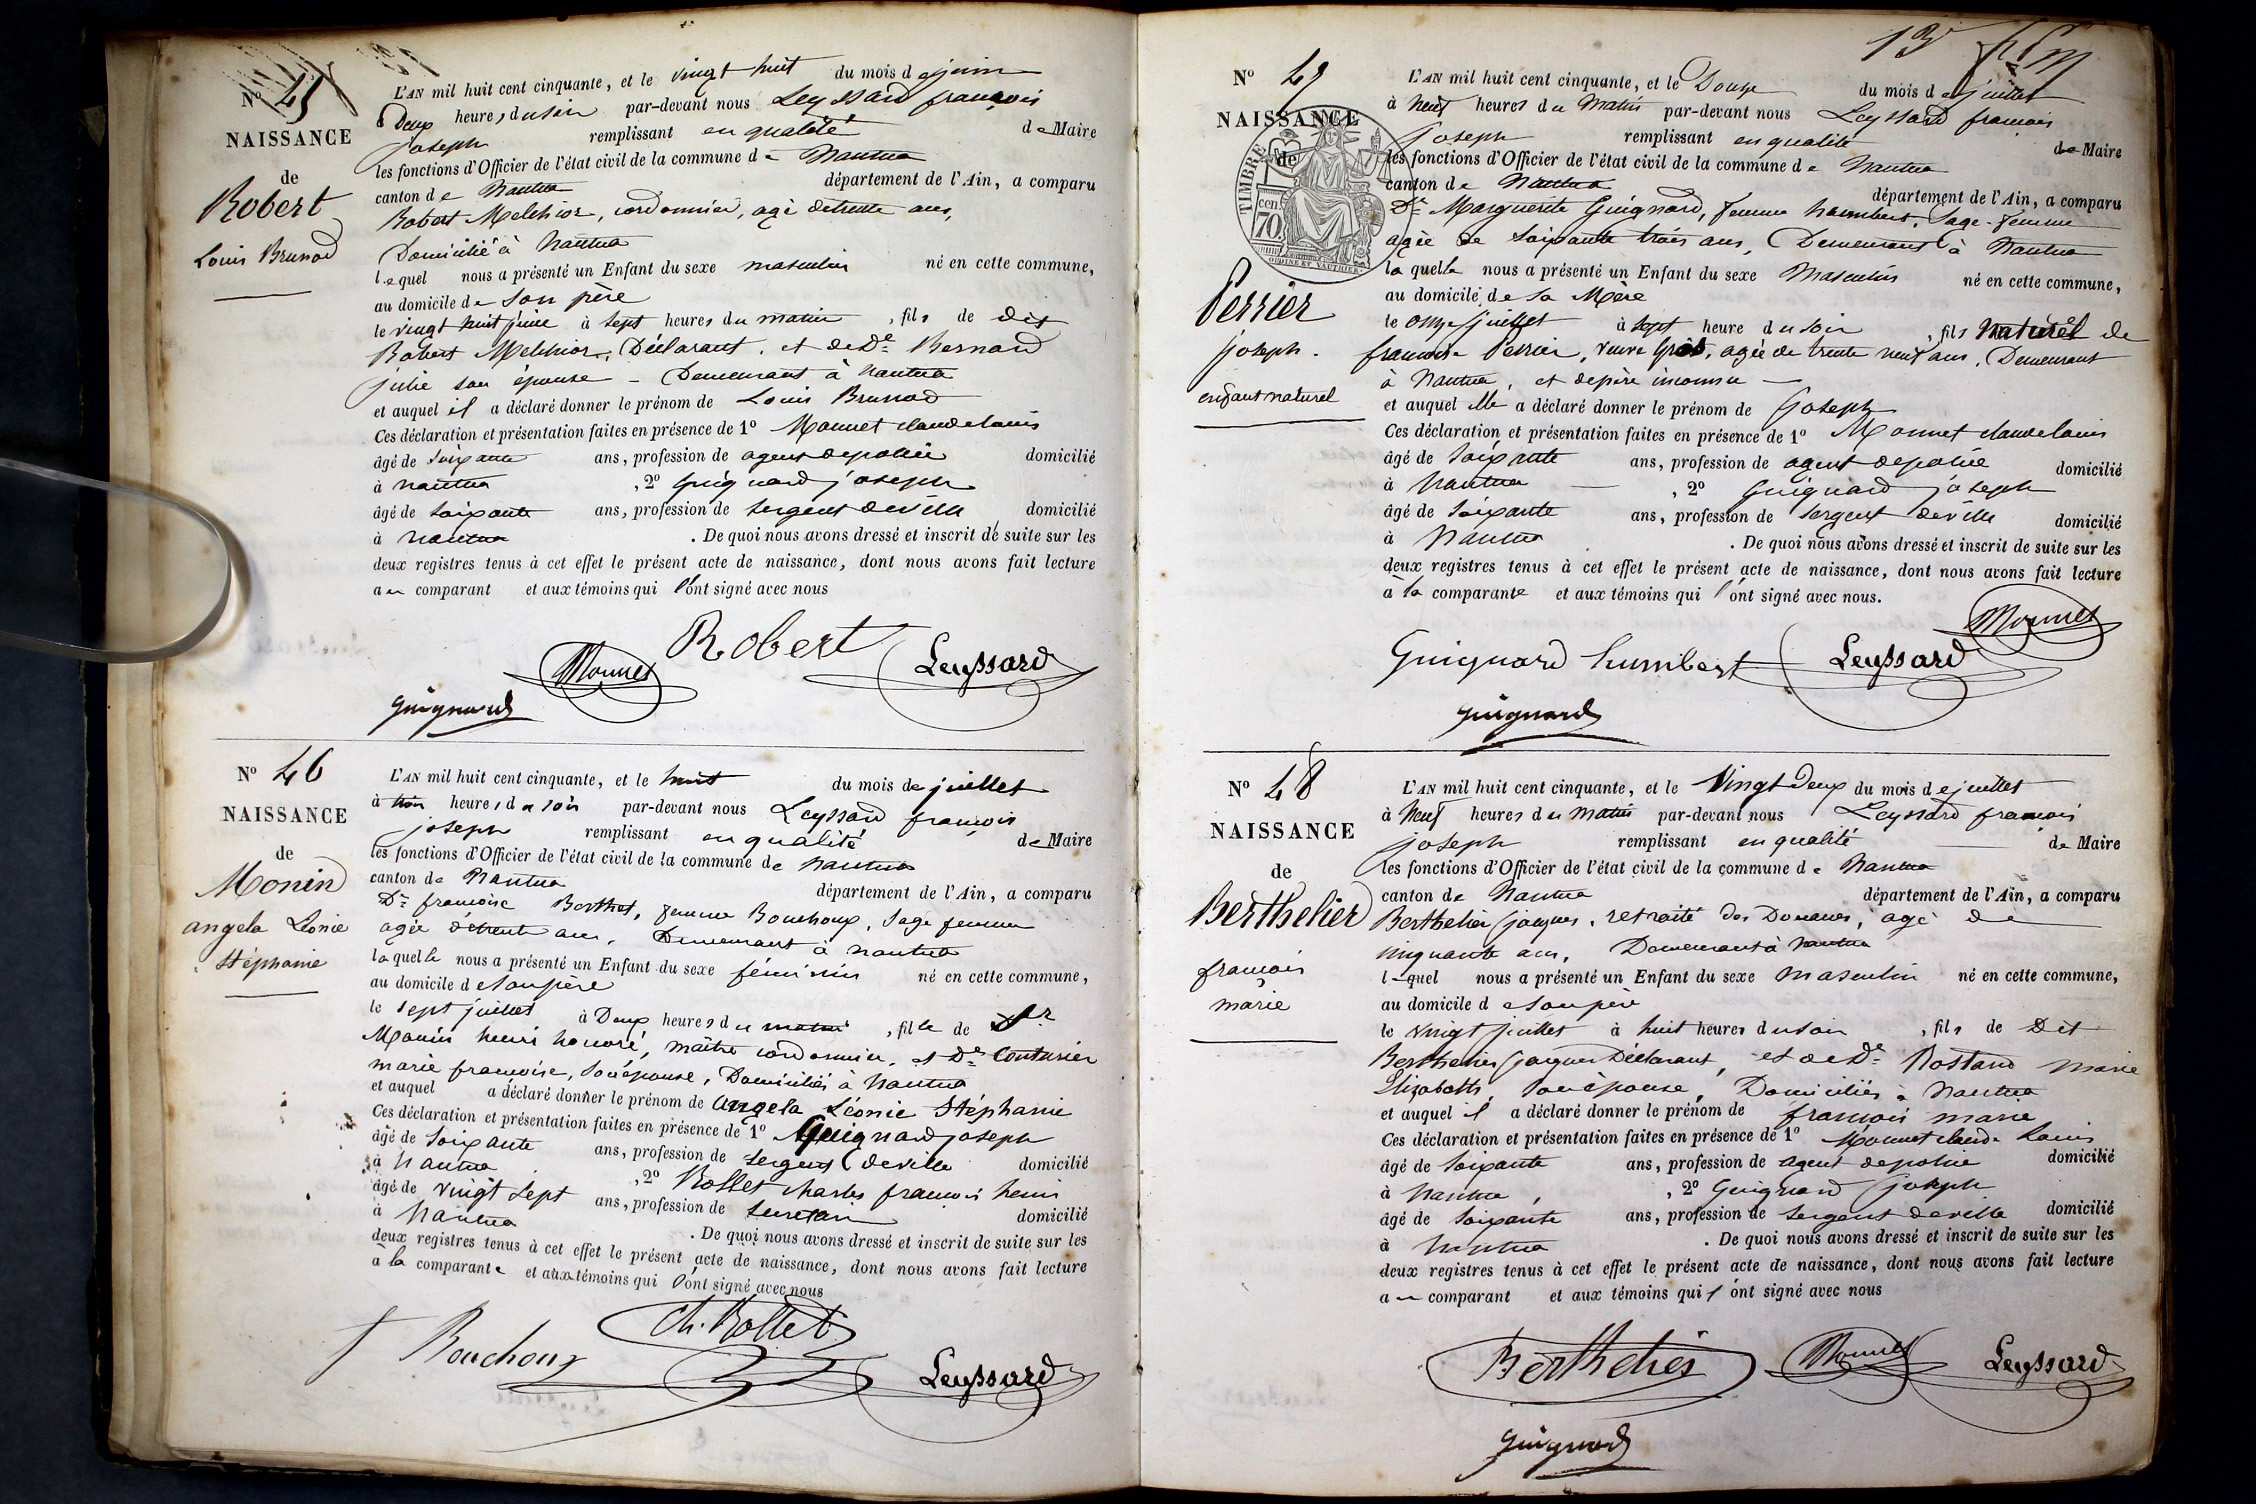 N° 45
NAISSANCE
de
Robert
Louis Brunod
L'AN mil huit cent cinquante, et le vingt huit du mois de juin
à Deux heures du soir par-devant nous Leyssard françois
joseph remplissant en qualité de Maire
les fonctions d'Officier de l'état civil de la commune de Nantua
canton de Nantua département de l'Ain, a comparu
Robert Melchior, cordonnier, agé de trente ans,
Domicilié à Nantua
lequel nous a présenté un Enfant du sexe masculin né en cette commune,
au domicile de Son père
le vingt huit juin à Sept heures du matin, fils de dit
Robert Melchior, Déclarant, et de De Bernard
julie son épouse - Demeurant à Nantua
et auquel il a déclaré donner le prénom de Louis Brunod
Ces déclaration et présentation faites en présence de 1° Monnet claude louis
âgé de Soixante ans, profession de agent de police domicilié
à Nantua, 2° Guignard joseph
âgé de Soixante ans, profession de Sergent de ville domicilié
à Nantua. De quoi nous avons dressé et inscrit de suite sur les
deux registres tenus à cet effet le présent acte de naissance, dont nous avons fait lecture
au comparant et aux témoins qui l'ont signé avec nous
Robert
Monnet Leyssard
Guignard
N° 46
NAISSANCE
de
Monin
angela Léonie
Stéphanie
L'AN mil huit cent cinquante, et le huit du mois de juillet
à trois heures du soir par-devant nous Leyssard françois
joseph remplissant en qualité de Maire
les fonctions d'Officier de l'état civil de la commune de Nantua
canton de Nantua département de l'Ain, a comparu
De françoise Berthet, femme Bouchoux, Sage femme
agée de trente ans, Demeurant à Nantua
laquelle nous a présenté un Enfant du sexe féminin né en cette commune,
au domicile de Son père
le Sept juillet à Deux heures du matin, fille de Sr
Monin henri honoré, maître cordonnier, et De Couturier
marie françoise, Son épouse, Domiciliés à Nantua
et auquel a déclaré donner le prénom de angela Léonie Stéphanie
Ces déclaration et présentation faites en présence de 1° Guignard joseph
âgé de Soixante ans, profession de Sergent de ville domicilié
à Nantua, 2° Rollet charles françois henri
âgé de vingt Sept ans, profession de Secretaire domicilié
à Nantua. De quoi nous avons dressé et inscrit de suite sur les
deux registres tenus à cet effet le présent acte de naissance, dont nous avons fait lecture
à la comparante et aux témoins qui l'ont signé avec nous
Ch. Rollet
f Bouchoux Leyssard
13
N° 47
NAISSANCE
de
TIMBRE
cen
70
Perrier
joseph.
enfant naturel
L'AN mil huit cent cinquante, et le Douze du mois de juillet
à Neuf heures du Matin par-devant nous Leyssard françois
joseph remplissant en qualité de Maire
les fonctions d'Officier de l'état civil de la commune de Nantua
canton de Nantua département de l'Ain, a comparu
De Marguerite Guignard, femme humbert, Sage-femme
agée de Soixante trois ans, Demeurant à Nantua
laquelle nous a présenté un Enfant du sexe Masculin né en cette commune,
au domicile de Sa Mère
le onze juillet à Sept heure du soir, fils Naturel de
françoise Perrier, veuve Gros, agée de trente neuf ans, Demeurant
à Nantua, et de père inconnu
et auquel elle a déclaré donner le prénom de joseph
Ces déclaration et présentation faites en présence de 1° Monnet claude louis
âgé de Soixante ans, profession de agent de police domicilié
à Nantua, 2° Guignard joseph
âgé de Soixante ans, profession de Sergent de ville domicilié
à Nantua. De quoi nous avons dressé et inscrit de suite sur les
deux registres tenus à cet effet le présent acte de naissance, dont nous avons fait lecture
à la comparante et aux témoins qui l'ont signé avec nous.
Monnet
Guignard humbert Leyssard
Guignard
N° 48
NAISSANCE
de
Berthelier
françois
marie
L'AN mil huit cent cinquante, et le Vingt Deux du mois de juillet
à Neuf heures du Matin par-devant nous Leyssard françois
joseph remplissant en qualité de Maire
les fonctions d'Officier de l'état civil de la commune de Nantua
canton de Nantua département de l'Ain, a comparu
Berthelier jacques, retraité des Douanes, agé de
cinquante ans, Demeurant à Nantua
lequel nous a présenté un Enfant du sexe Masculin né en cette commune,
au domicile de Son père
le vingt juillet à huit heures du soir, fils de Dit
Berthelier jacques Déclarant, et de De Rostand Marie
Elizabeth, Son épouse, Domiciliés à Nantua
et auquel il a déclaré donner le prénom de françois marie
Ces déclaration et présentation faites en présence de 1° Monnet claude Louis
âgé de Soixante ans, profession de agent de police domicilié
à Nantua, 2° Guignard joseph
âgé de Soixante ans, profession de Sergent de ville domicilié
à Nantua. De quoi nous avons dressé et inscrit de suite sur les
deux registres tenus à cet effet le présent acte de naissance, dont nous avons fait lecture
au comparant et aux témoins qui l'ont signé avec nous
Berthelier Monnet Leyssard
Guignard